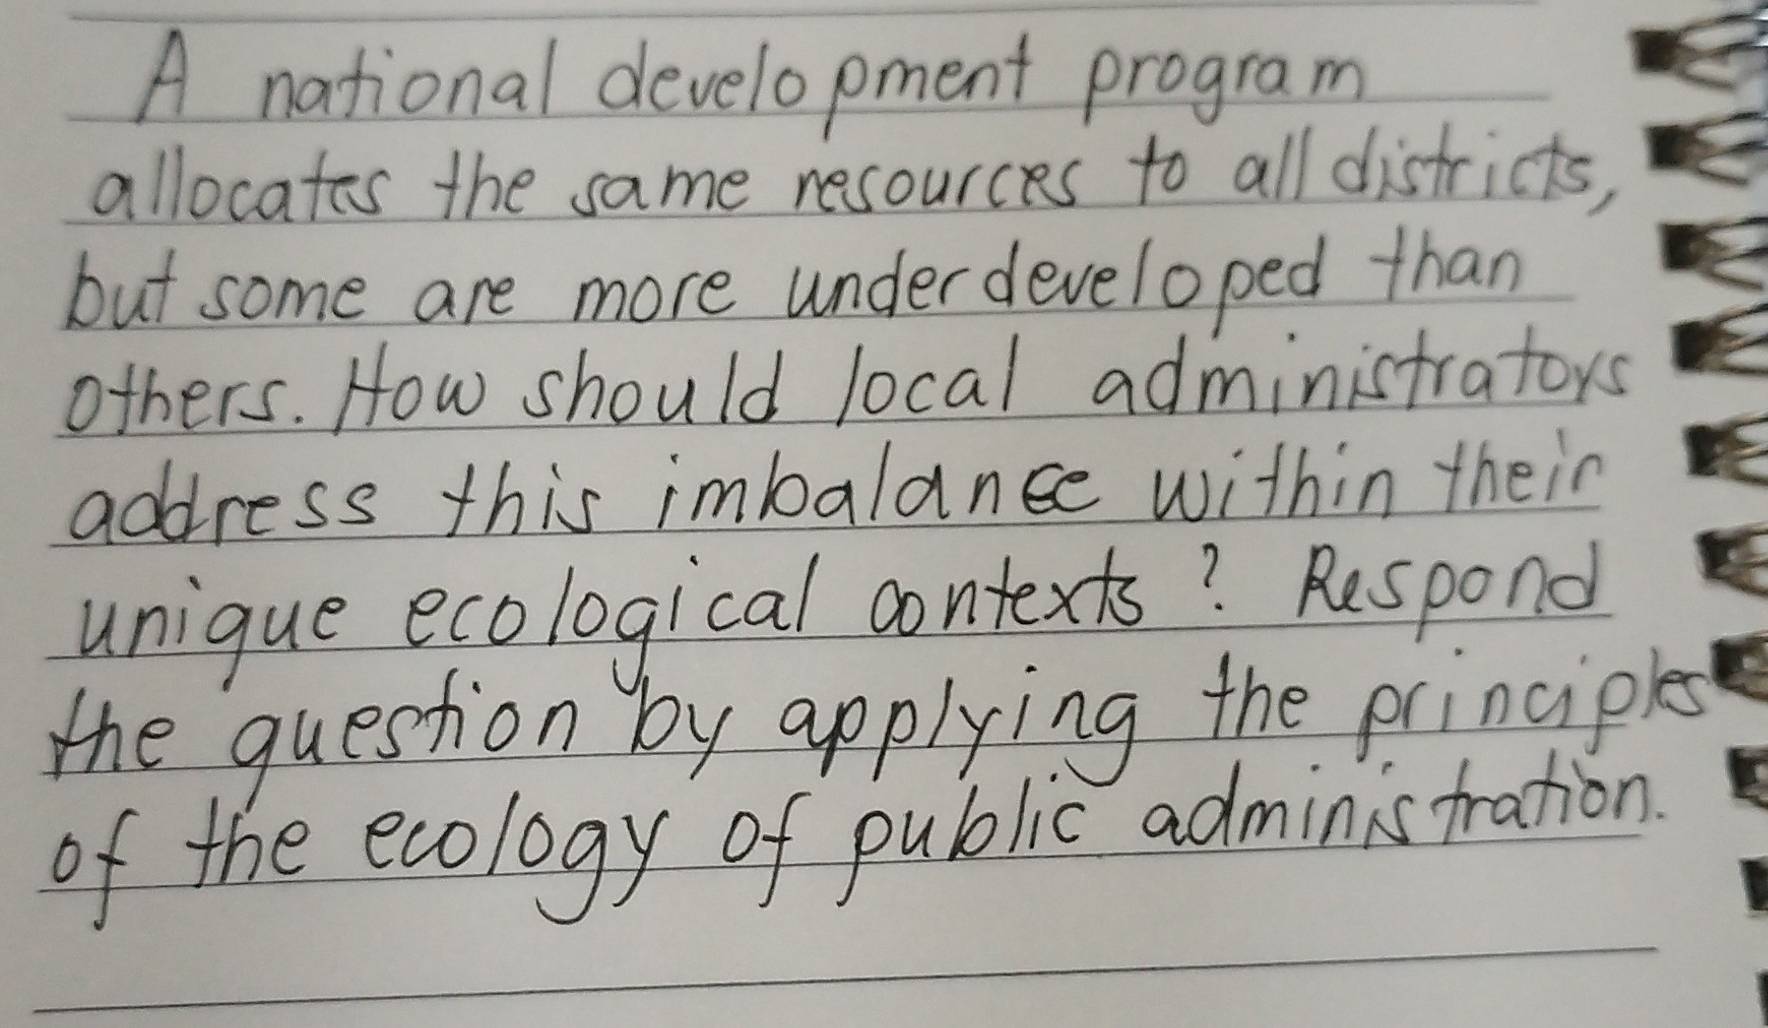 A national development program
allocates the same resources to all districts,
but some are more underdeveloped than
others. How should local administrators
address this imbalance within their
unique ecological contexts? Respond
the question by applying the principles
of the ecology of public administration.